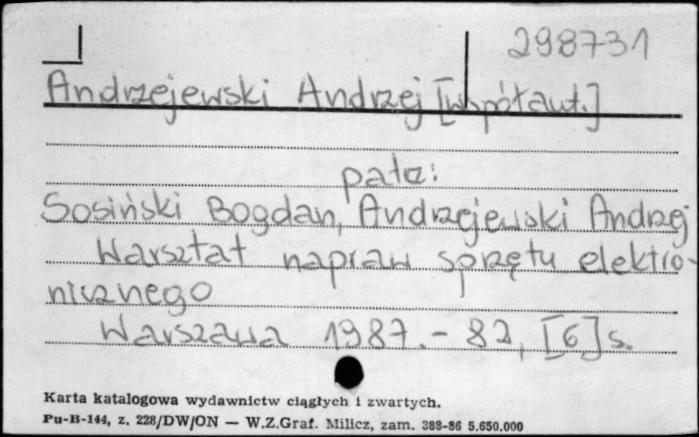 298731
Andrzejewski Andrzej [współaut.]
patz:
Sosiński Bogdan, Andrzejewski Andrzej
Warsztat napraw sprzętu elektro-
nicznego
Warszawa 1987. - 82, [6] s.
Karta katalogowa wydawnictw ciągłych i zwartych.
Pu-B-144, z. 228/DW/ON — W.Z.Graf. Milicz, zam. 388-86 5.650.000